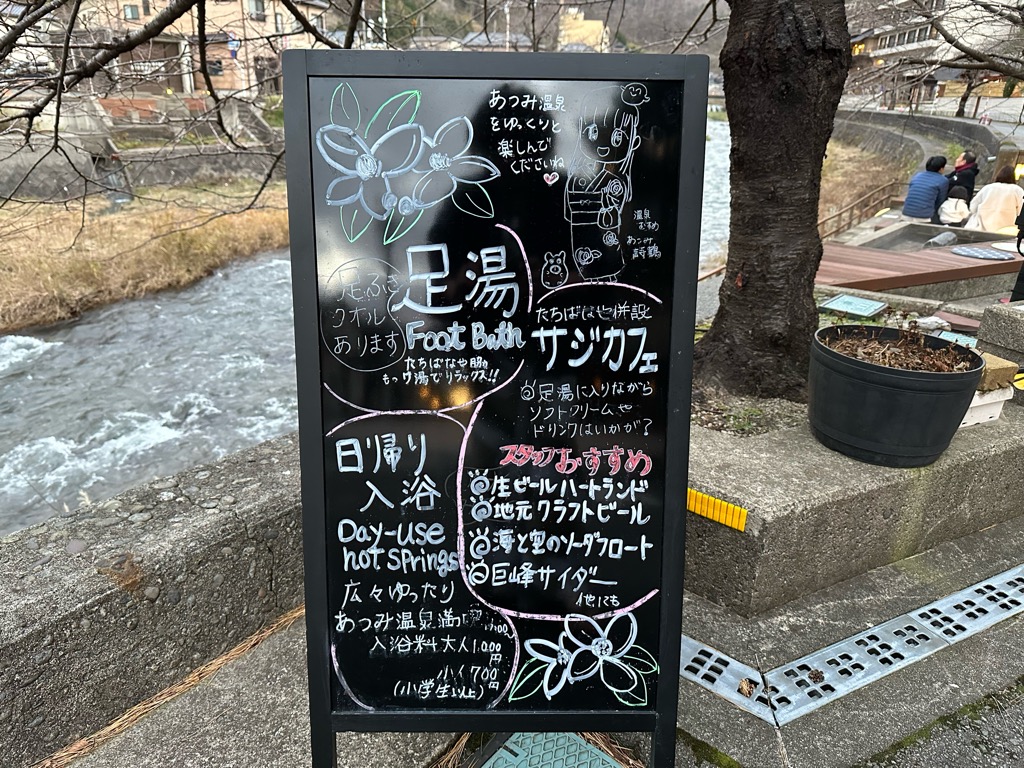 あつみ温泉
をゆっくりと
楽しんで
くださいね
温泉
むすめ
あつみ
詩鶴
足湯
Foot Bath
足ふき
タオルも
あります
たちばなや脇
もっケ湯でリラックス!!
たちばなや併設
サジカフェ
足湯に入りながら
ソフトクリームや
ドリンクはいかが?
スタッフおすすめ
生ビールハートランド
地元クラフトビール
海と空のソーダフロート
巨峰サイダー
他にも
日帰り
入浴
Day-use
hot springs
広々ゆったり
あつみ温泉満喫
入浴料大人1,000円
小人700円
(小学生以上)